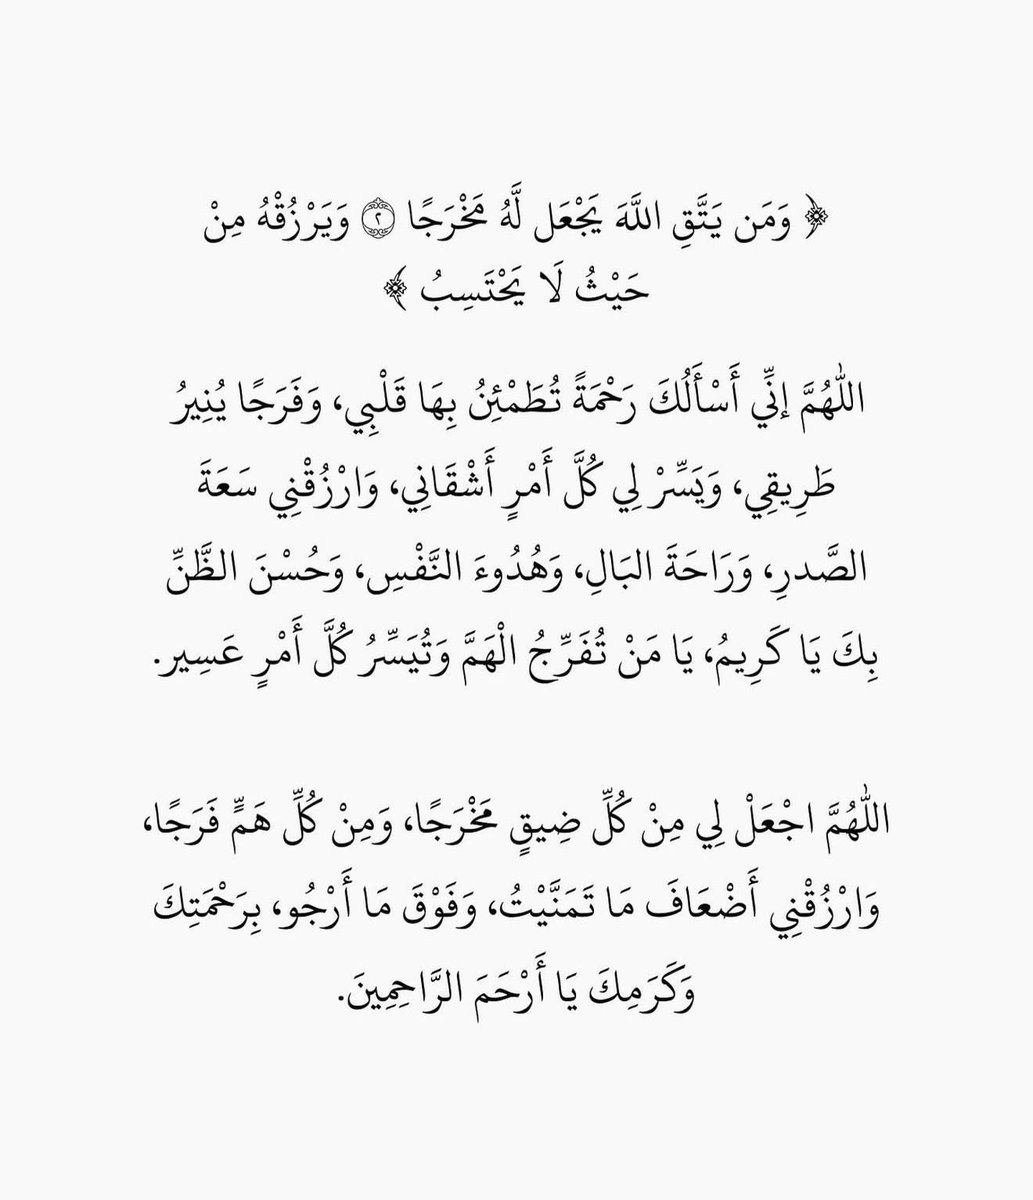 ﴿ وَمَن يَتَّقِ اللَّهَ يَجْعَل لَّهُ مَخْرَجًا ۝٢ وَيَرْزُقْهُ مِنْ
حَيْثُ لَا يَحْتَسِبُ ﴾
اللّٰهُمَّ إنِّي أَسْأَلُكَ رَحْمَةً تُطَمْئِنُ بِهَا قَلْبِي، وَفَرَجًا يُنِيرُ
طَرِيقِي، وَيَسِّرْ لِي كُلَّ أَمْرٍ أَشْقَانِي، وَارْزُقْنِي سَعَةَ
الصَّدرِ، وَرَاحَةَ البَالِ، وَهُدُوءَ النَّفْسِ، وَحُسْنَ الظَّنِّ
بِكَ يَا كَرِيمُ، يَا مَنْ تُفَرِّجُ الْهَمَّ وَتُيَسِّرُ كُلَّ أَمْرٍ عَسِير.
اللّٰهُمَّ اجْعَلْ لِي مِنْ كُلِّ ضِيقٍ مَخْرَجًا، وَمِنْ كُلِّ هَمٍّ فَرَجًا،
وَارْزُقْنِي أَضْعَافَ مَا تَمَنَّيْتُ، وَفَوْقَ مَا أَرْجُو، بِرَحْمَتِكَ
وَكَرَمِكَ يَا أَرْحَمَ الرَّاحِمِينَ.